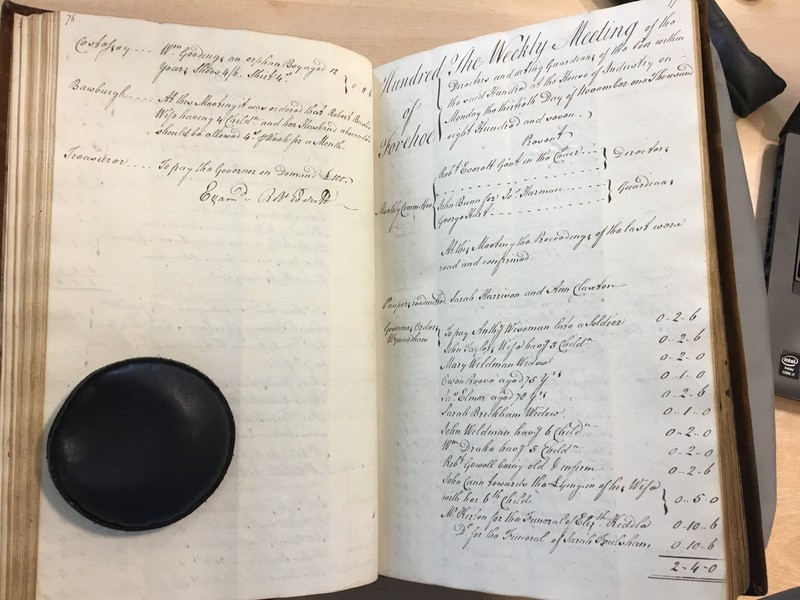 76
Costessey ---- Wm. Gooding an orphan Boy aged 12
Years Shoes 4/6. Shirt 4s
Bawburgh ---- At this Meeting it was ordered that Robert
Wife having 4 Childn. and her Husband absconded
should be allowed 4s. p Week for a Month
Treasurer ---- To pay the Governor on Demand £100.
Examd. Robt Everett
77
Hundred
of
Forehoe
The Weekly Meeting of the
Directors and acting Guardians of the Poor within
the said Hundred at the House of Industry on
Monday the thirtieth Day of November one Thousand
eight Hundred and seven.
Present
Robt. Everett Gent in the Chair ---- Directors
Monthly Committee
John Bunn for Jas. Harman ---- Guardians
George Hart ----
At this Meeting the Proceedings of the last were
read and confirmed.
Paupers readmitted Sarah Harrison and Ann Claxton
Governors Orders
Wymondham
To pay Anthy. Wiseman late a Soldier 0-2-6
John Taylors Wife havg 3 Childn. 0-2-0
Mary Wildman Widow 0-1-0
Owen Reeve aged 75 Yrs 0-2-6
Jas. Elmer aged 70 Yrs 0-1-0
Sarah Breckham Widow 0-2-0
John Wildman havg 6 Childn. 0-2-0
Wm. Drake havg 5 Childn. 0-2-6
Robt. Gowell being old & infirm
John Cann towards the Lying in of his Wife
with her 6th Child 0-5-0
Mr. Kerton for the Funeral of Elizth. Kiddle 0-10-6
Do. for the Funeral of Sarah Foulsham 0-10-6
2-4-0
intel
CORE i7